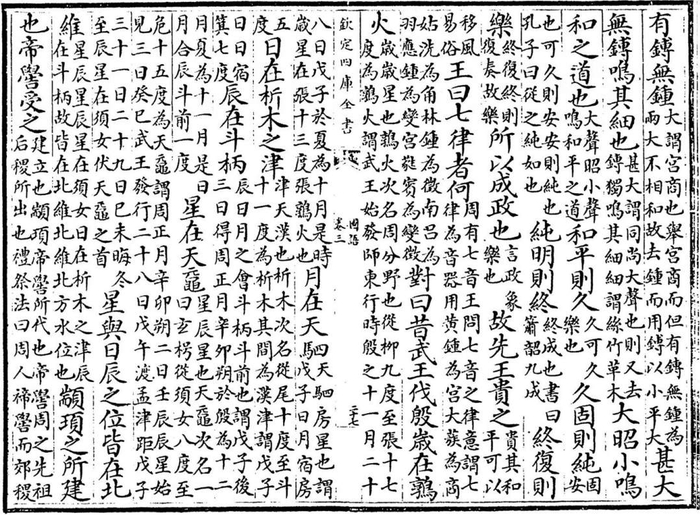 有鎛無鍾大謂宮商也舉宮商而但有鎛無鍾為兩大不相和故去鍾而用鎛以小平大甚大
無鎛鳴其細也甚大謂同尚大聲也則又去鎛獨鳴其細細謂絲竹革木大昭小鳴
和之道也大聲昭小聲鳴和平之道和平則久久可久樂也久固則純固安
也可久則安安則純也孔子曰從之純如也純明則終終成也書曰簫韶九成終復則
樂終復終則復奏故樂所以成政也言政象樂也故先王貴之貴其和平可以
移風易俗王曰七律者何周有七音王問七音之律意謂七律為音器用黃鍾為宮大蔟為商
姑洗為角林鍾為徵南呂為羽應鍾為變宮蕤賓為變徵對曰昔武王伐殷歲在鶉
火歲歲星也鶉火次名周分野也從柳九度至張十七度為鶉火謂武王始發師東行時殷之十一月二十
欽定四庫全書
國語
卷三
二十七
八日戊子於夏為十月是時歲星在張十三度張鶉火也月在天駟天駟房星也謂戊子日月宿房
五度日在析木之津津天漢也析木次名從尾十度至斗十一度為析木其間為漢津謂戊子
日日宿箕七度辰在斗柄辰日月之會斗柄斗前也謂戊子後三日得周正月辛卯朔於殷為十二
月夏為十一月是日月合辰斗前一度星在天黿星辰星也天黿次名一曰玄枵從須女八度至
危十五度為天黿謂周正月辛卯朔二日壬辰辰星始見三日癸巳武王發行二十八日戊午渡孟津距戊子
三十一日二十九日已未晦冬至辰星在須女伏天黿之首星與日辰之位皆在北
維星辰星辰星在須女日在析木之津辰在斗柄故皆在北維北維北方水位也顓頊之所建
也帝嚳受之建立也顓頊帝嚳所代也帝嚳周之先祖后稷所出也禮祭法曰周人禘嚳而郊稷